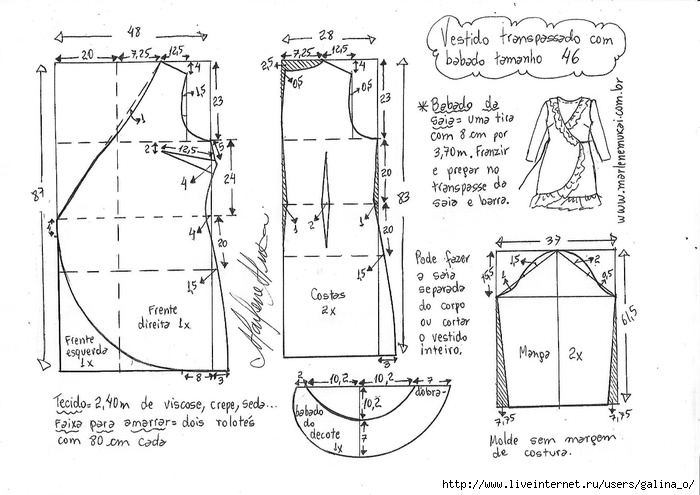 Vestido transpassado com
babado tamanho 46
* Babado da
saia= uma tira
com 8 cm por
3,70m. Franzir
e pregar no
transpasse da
saia e barra.
www.marlenemukai.com.br
48
20
7,25
12,5
4
1,5
23
1
2
12,5
5
4
24
87
4
20
1,5
1
Frente
direita 1x
Frente
esquerda
1x
8
3
28
2,5
7,25
12,5
4
0,5
0,5
23
20
83
1
2
1
20
1,5
Costas
2x
3
Pode fazer
a saia
separada
do corpo
ou cortar
o vestido
inteiro.
37
1,5
2
1
0,5
61,5
Manga 2x
7,75
7,75
Molde sem margem
de costura.
2
10,2
10,2
7
dobra
10,2
7
babado
do
decote
1x
Tecido= 2,40m de viscose, crepe, seda...
Faixa para amarrar= dois rolotês
com 80 cm cada
http://www.liveinternet.ru/users/galina_o/